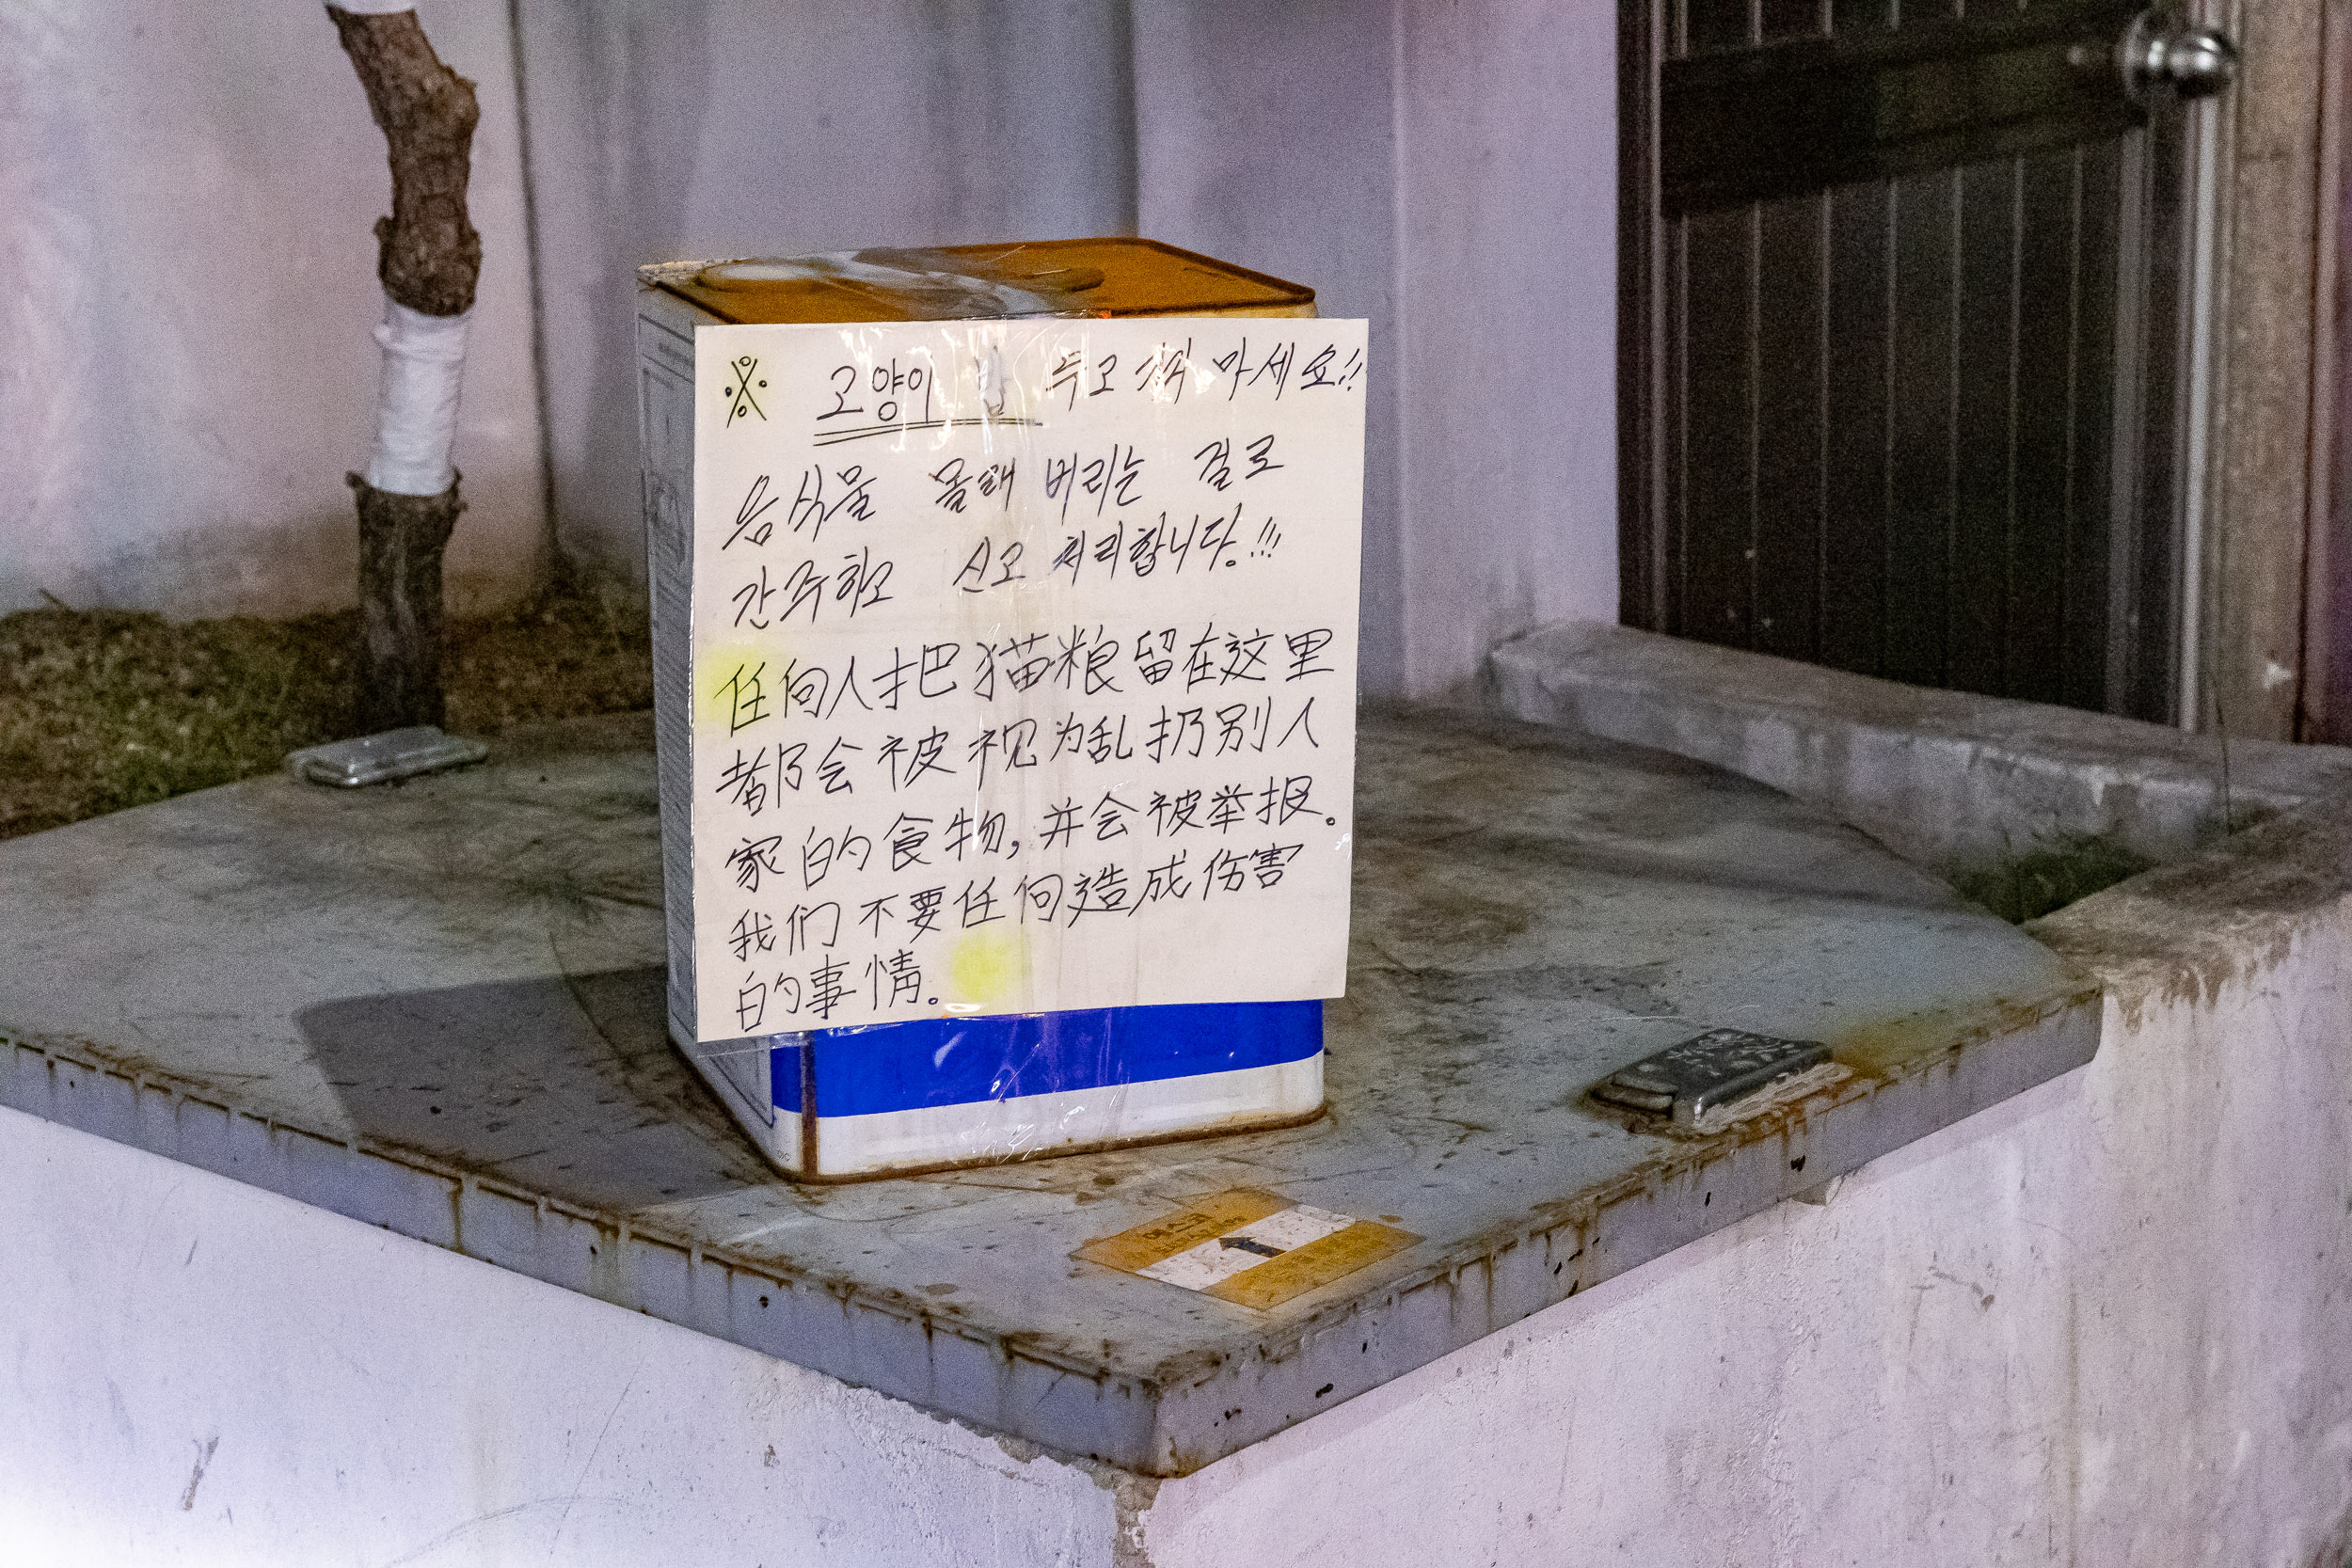 ※ 고양이 밥 두고 가지 마세요!!
음식물 몰래 버리는 걸로
간주하고 신고 처리합니다.!!!
任何人把猫粮留在这里
都会被视为乱扔别人
家的食物,并会被举报。
我们不要任何造成伤害
的事情。
에스코